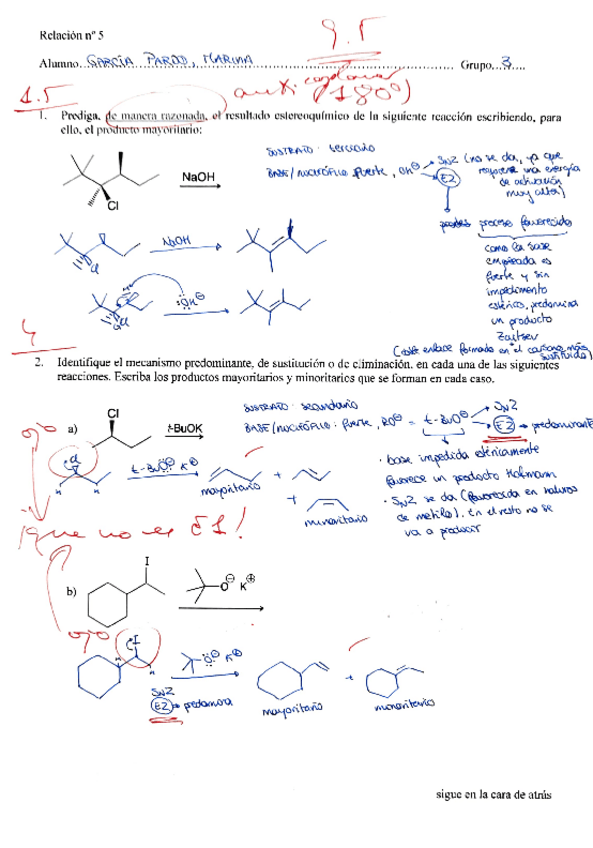 Relación nº 5
9.5
Alumno. GARCÍA PARDO, MARINA Grupo. 3
1.5
anticoplanar
(180º)
1. Prediga, de manera razonada, el resultado estereoquímico de la siguiente reacción escribiendo, para
ello, el producto mayoritario:
SUSTRATO: terciario
BASE/NUCLEÓFILO: fuerte, OH⊖
SN2 (no se da, ya que
requiere una energía
de activación
muy alta)
E2
proceso favorecido
NaOH
Cl
NaOH
Cl
:OH⊖
Cl
como la base
empleada es
fuerte y sin
impedimento
estérico, predomina
un producto
Zaitsev
(doble enlace formado en el carbono más
sustituido)
4
2. Identifique el mecanismo predominante, de sustitución o de eliminación, en cada una de las siguientes
reacciones. Escriba los productos mayoritarios y minoritarios que se forman en cada caso.
SUSTRATO: secundario
BASE/NUCLEÓFILO: fuerte, RO⊖ = t-BuO⊖
SN2
E2 → predominante
ojo
a)
Cl
t-BuOK
Cl
H
H
t-BuO⊖ K⊕
mayoritario
+
+
minoritario
· base impedida estéricamente
favorece un producto Hofmann
· SN2 se da (favorecida en haluros
de metilo). En el resto no se
va a producir
¡que no es E1!
b)
I
O⊖ K⊕
ojo
I
H
H
O⊖ K⊕
SN2
E2 → predomina
+
mayoritario
minoritario
sigue en la cara de atrás